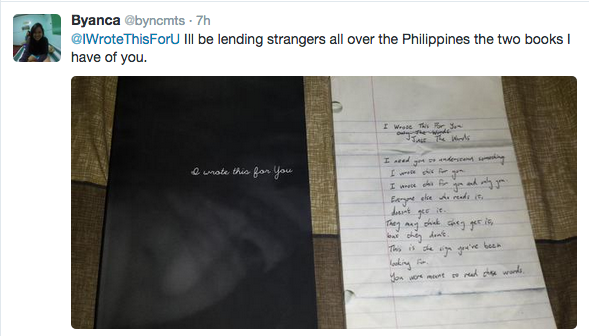 Byanca @byncmts · 7h
@IWroteThisForU Ill be lending strangers all over the Philippines the two books I
have of you.
I wrote this for You
I Wrote This For You
Only The Words
Just The Words
I need you to understand something.
I wrote this for you.
I wrote this for you and only you.
Everyone else who reads it,
doesnt get it.
They may think they get it,
but they don't.
This is the sign you've been
looking for.
You were meant to read these words.